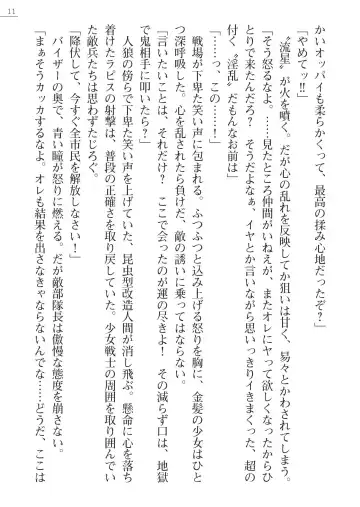 11
かいオッパイも柔らかくって、最高の揉み心地だったぞ？」
「やめてッ‼」
〝流星〟が火を噴く。だが心の乱れを反映してか狙いは甘く、易々とかわされてしまう。
「そう怒るなよ。……見たところ仲間がいねえが、またオレにヤって欲しくなったからひ
とりで来たんだろ？　そうだよなぁ、イヤとか言いながら思いっきりイきまくった、超の
付く〝淫乱〟だもんなお前は」
「……っ、この……！」
戦場が下卑た笑い声に包まれる。ふつふつと込み上げる怒りを胸に、金髪の少女はひと
つ深呼吸した。心を乱されたら負けだ、敵の誘いに乗ってはならない。
「言いたいことは、それだけ？　ここで会ったのが運の尽きよ！　その減らず口は、地獄
で鬼相手に叩いたら？」
人狼の傍らで下卑た笑い声を上げていた、昆虫型改造人間が消し飛ぶ。懸命に心を落ち
着けたラピスの射撃は、普段の正確さを取り戻していた。少女戦士の周囲を取り囲んでい
た敵兵たちは思わずたじろぐ。
「降伏して、全市民を解放しなさい！」
バイザーの奥で、青い瞳が怒りに燃える。だが敵部隊長は傲慢な態度を崩さない。
「まぁそうカッカするなよ。オレも結果を出さなきゃならないんでな……どうだ、ここは